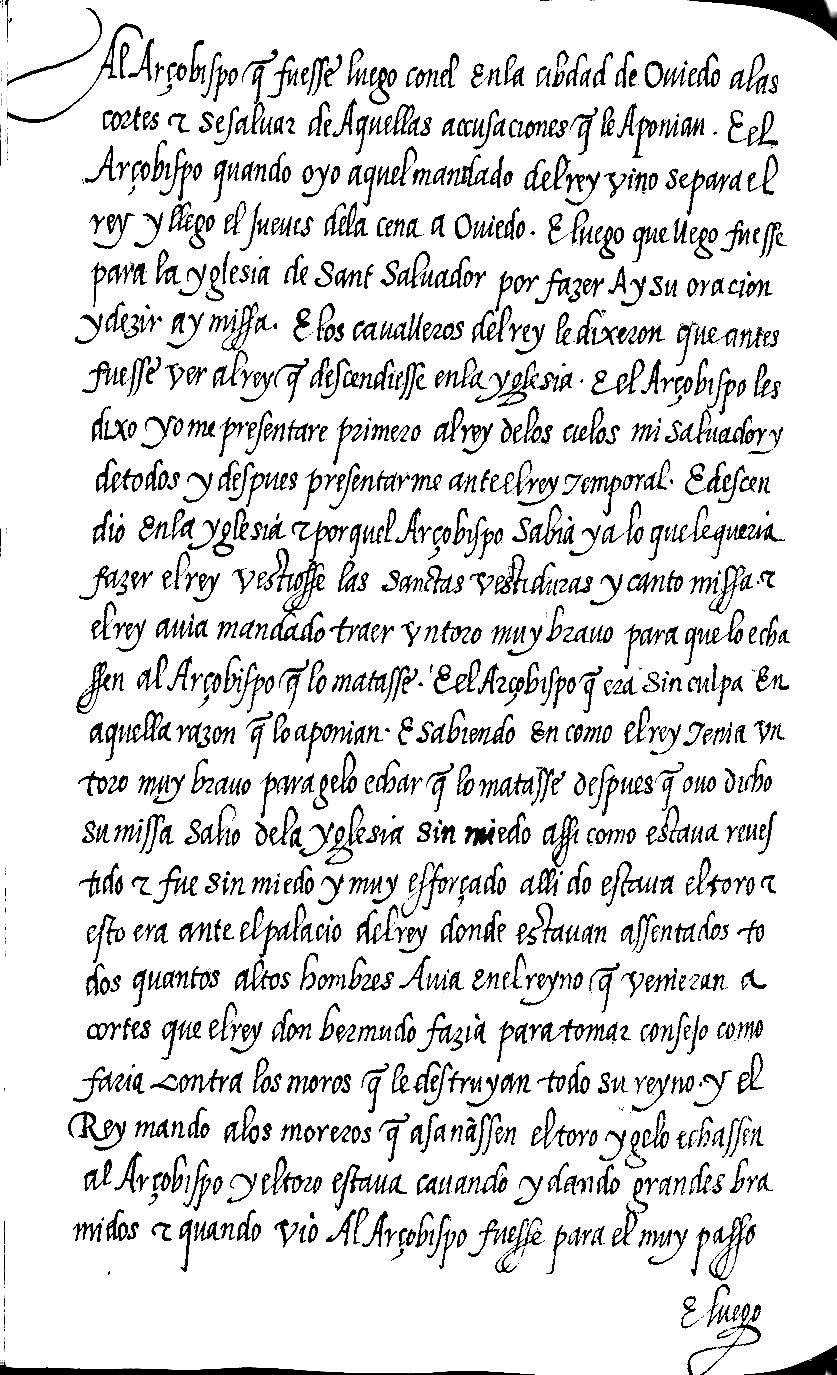 Al Arçobispo q̃ fuesse luego conel enla cibdad de Oviedo alas
cortes τ sesaluar de Aquellas accusaciones q̃ le Aponian. E el
Arçobispo quando oyo aquel mandado delrey vino separa el
rey y llego el Jueves dela cena a Oviedo. E luego que llego fuesse
para la yglesia de Sant Salvador por fazer Ay su oracion
y dezir ay missa. E los cavalleros delrey le dixeron que antes
fuesse ver alrey q̃ descendiesse enla yglesia. E el Arçobispo les
dixo yo me presentare primero alrey delos cielos mi Salvador y
detodos y despues presentarme ante el rey Temporal. E descen
dió enla yglesia τ porquel Arçobispo Sabià ya lo que lequeria
fazer elrey vestiosse las Sanctas vestiduras y canto missa. τ
el rey avia mandado traer vn toro muy bravo para que lo echa
ssen al Arçobispo q̃ lo matasse. E el Arçobispo q̃ era sin culpa En
aquella razon q̃ lo aponian. E Sabiendo en como el rey Tenia vn
toro muy bravo para gelo echar q̃ lo matasse despues q̃ ouo dicho
su missa Salio dela yglesia Sin miedo assi como estava reves
tido τ fue sin miedo y muy esforçado alli do estava el toro τ
esto era ante el palacio delrey donde estavan assentados to
dos quantos altos hombres Avia enelreyno q̃ venieran a
cortes que elrey don bermudo fazià para tomar consejo como
faria contra los moros q̃ le destruyan todo su reyno. y el
Rey mando alos moreros q̃ asanàssen el toro y gelo echassen
al Arçobispo y el toro estava cavando y dando grandes bra
midos τ quando viò Al Arçobispo fuesse para el muy passo
E luego